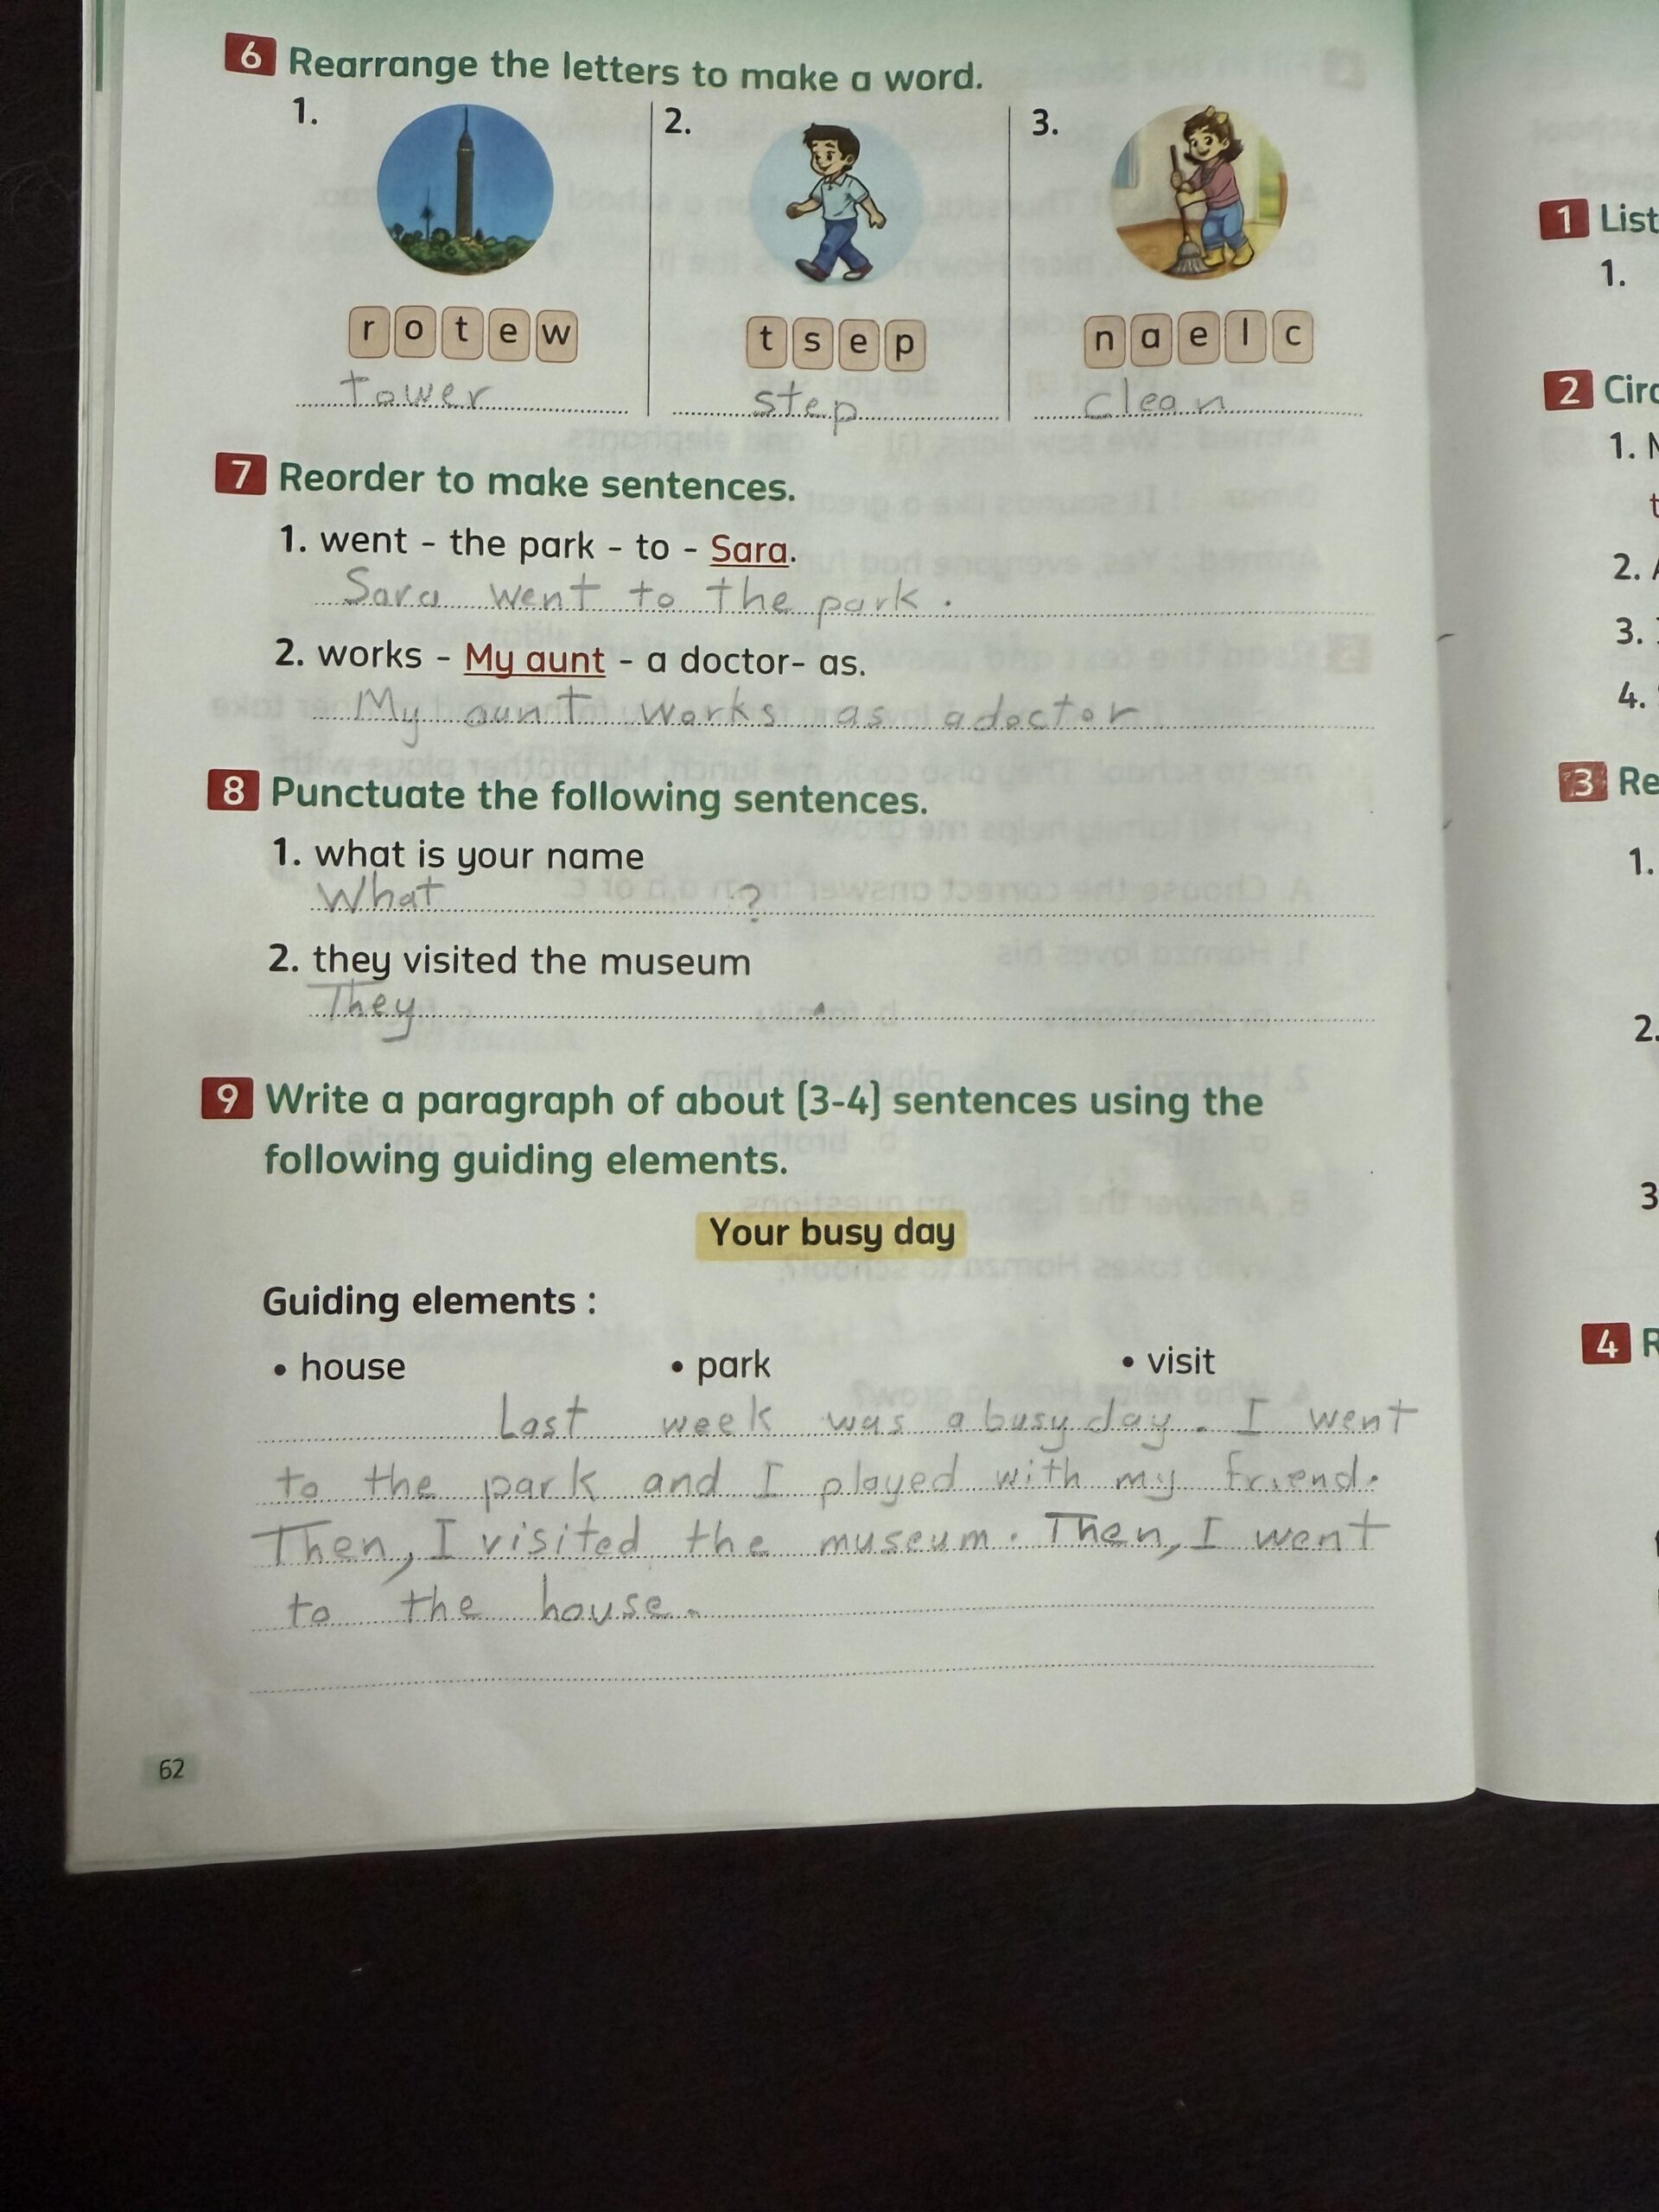 6 Rearrange the letters to make a word.
1. 2. 3.
r o t e w t s e p n a e l c
tower step clean
7 Reorder to make sentences.
1. went - the park - to - Sara.
Sara went to the park .
2. works - My aunt - a doctor- as.
My aunt works as a doctor
8 Punctuate the following sentences.
1. what is your name
What ?
2. they visited the museum
They .
9 Write a paragraph of about (3-4) sentences using the
following guiding elements.
Your busy day
Guiding elements :
• house • park • visit
Last week was a busy day. I went
to the park and I played with my friend.
Then, I visited the museum. Then, I went
to the house.
62
1 List
1.
2 Circ
1.
2.
3.
4.
3 Re
1.
2.
3
4 R